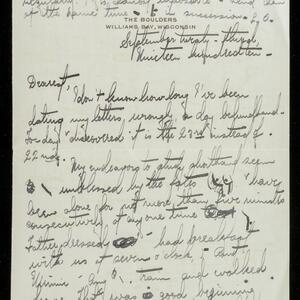 at the same time
THE BOULDERS
WILLIAMS BAY, WISCONSIN
September twenty-third,
Nineteen hundred ten.
Dearest,
I don't know how long I've been
dating my letters, wrongly, a day behindhand.
For day I discovered it is the 23rd instead of
22nd.
My endeavors to study shorthand seem
unblessed by the fates. I have
been alone for not more than five minutes
consecutively at any one time.
Father dressed had breakfast
with us at seven o'clock, and
train and worked
that was a good beginning